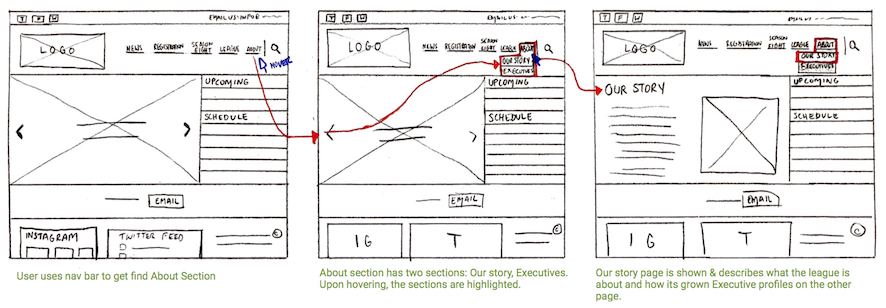 T F W
EMAIL US:
LOGO
NEWS REGISTRATION SEASON EIGHT LEAGUE ABOUT
HOVER
UPCOMING
SCHEDULE
EMAIL
INSTAGRAM
TWITTER FEED
C
User uses nav bar to get find About Section
T F W
EMAIL US
LOGO
NEWS REGISTRATION SEASON EIGHT LEAGUE ABOUT
OUR STORY
EXECUTIVES
UPCOMING
SCHEDULE
EMAIL
IG
T
C
About section has two sections: Our story, Executives.
Upon hovering, the sections are highlighted.
T F W
EMAIL US
LOGO
NEWS REGISTRATION SEASON EIGHT LEAGUE ABOUT
OUR STORY
EXECUTIVES
OUR STORY
UPCOMING
SCHEDULE
EMAIL
IG
T
C
Our story page is shown & describes what the league is
about and how its grown Executive profiles on the other
page.